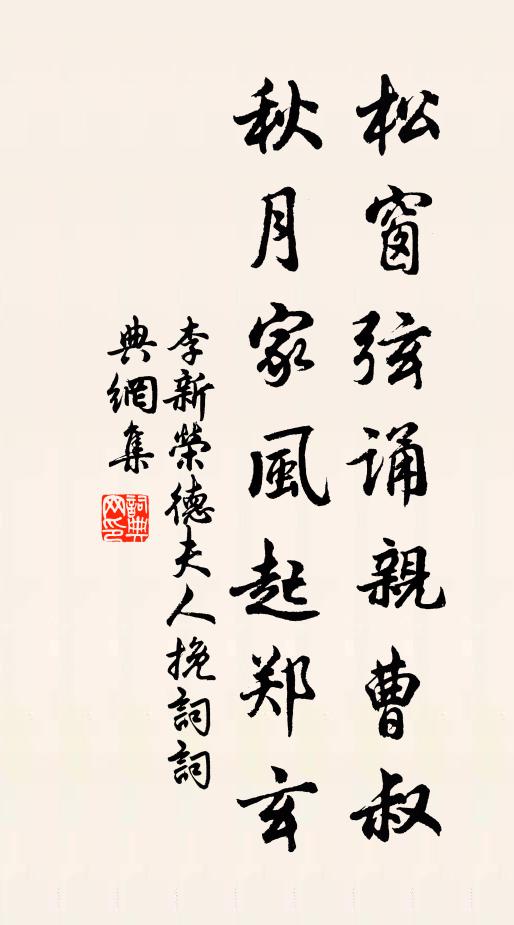 松窗弦诵親曹叔
秋月家風起郑玄
李新榮德夫人挽詞詞
典網集
詞典网印